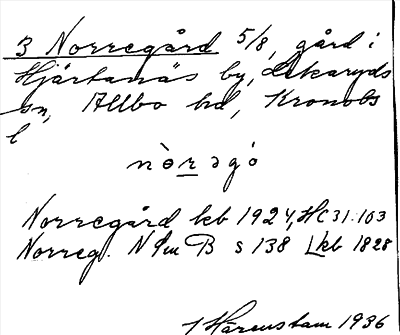 3 Norregård 5/8, gård i
Hjärtanäs by, Lekaryds
sn, Allbo hd, Kronobs
l
nòr̲əgó
Norregård kb 1924, HC31.103
Norreg. N 9m B s 138 Lkb 1828
Härenstam 1936